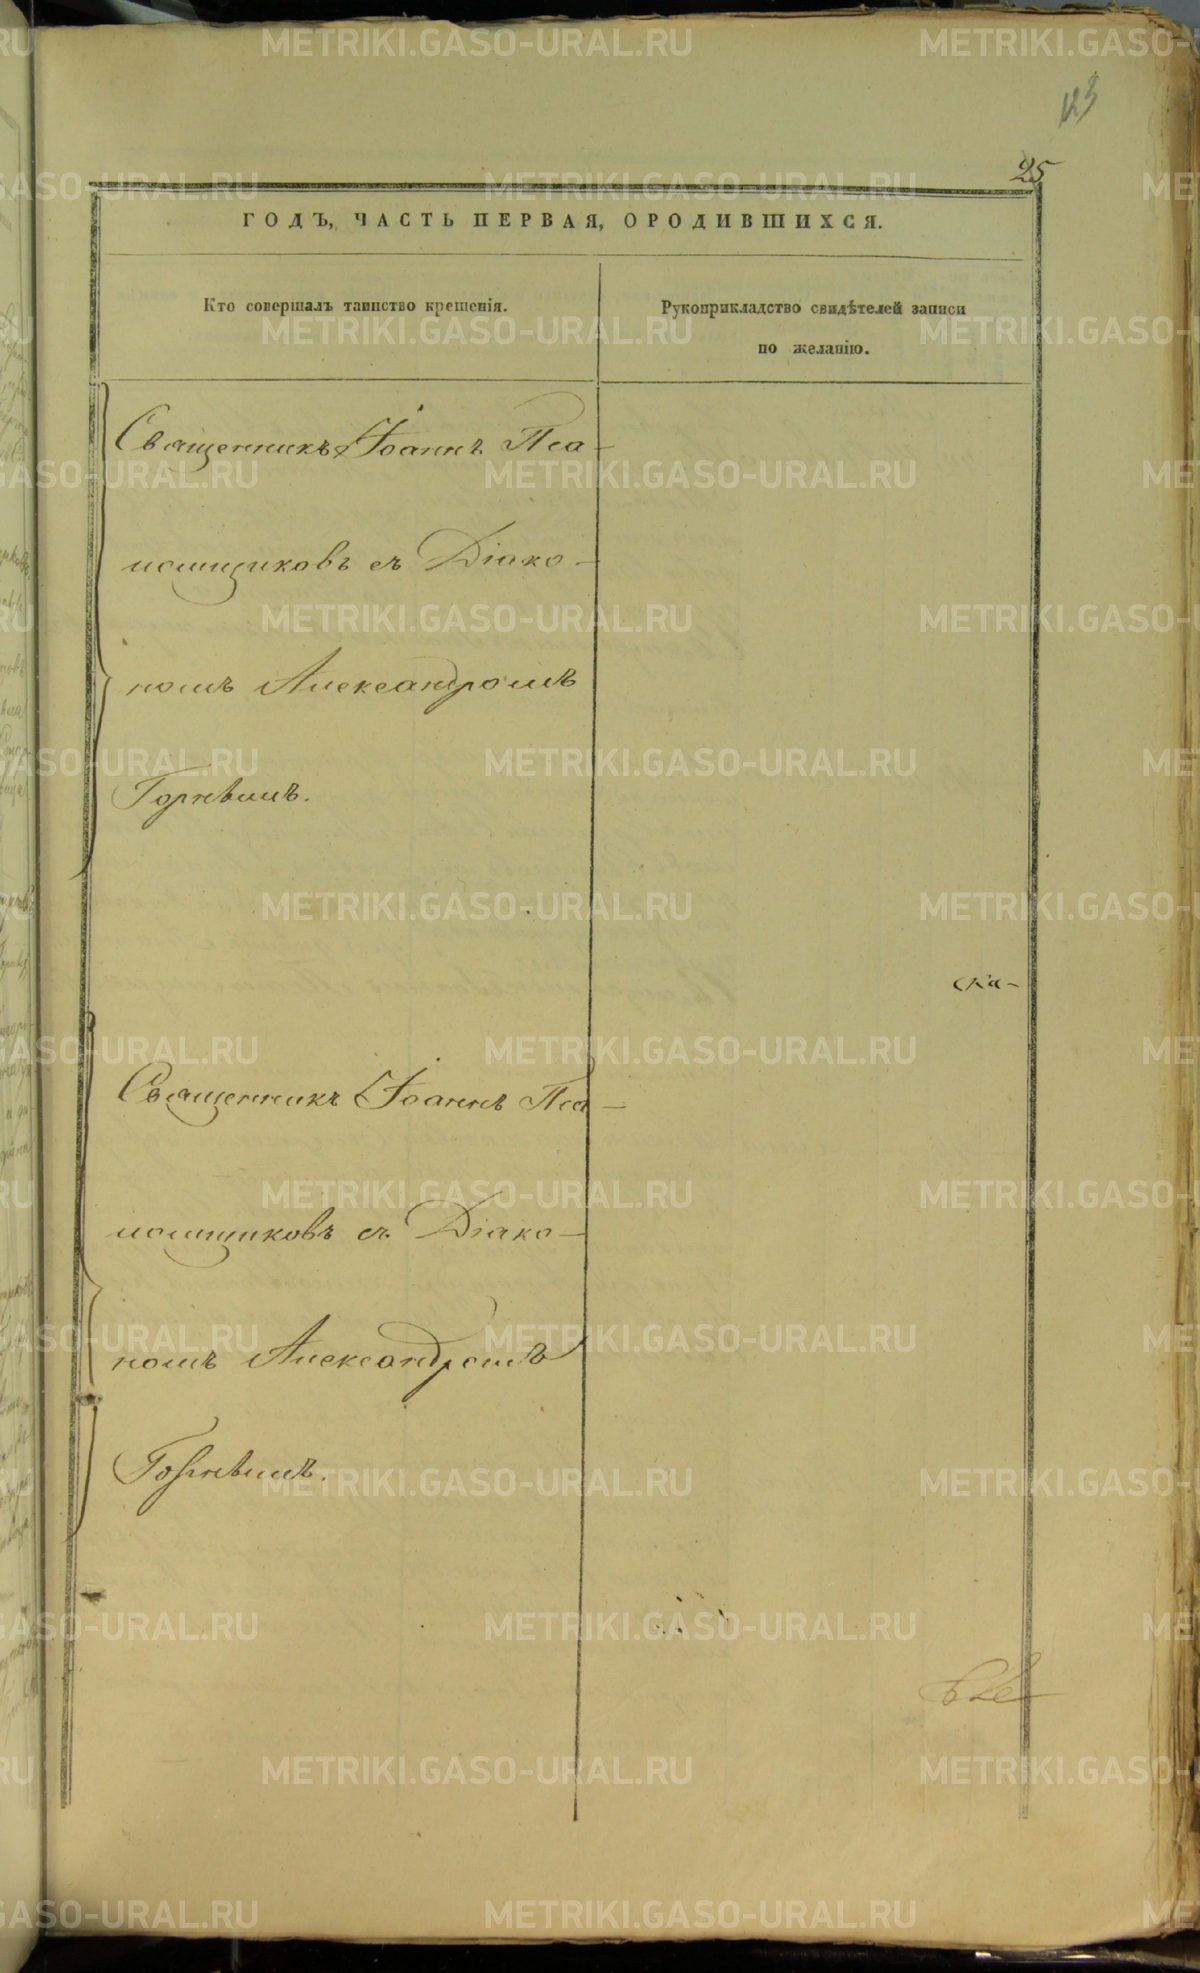 123
25
ГОДЪ, ЧАСТЬ ПЕРВАЯ, ОРОДИВШИХСЯ.
Кто совершалъ таинство крещенія.
Рукоприкладство свидѣтелей записи
по желанію.
Священникъ Іоаннъ Пса-
ломщиковъ съ Діако-
номъ Александромъ
Горнѣвымъ.
ска-
Священникъ Іоаннъ Пса-
ломщиковъ съ Діако-
номъ Александромъ
Горнѣвымъ.
METRIKI.GASO-URAL.RU